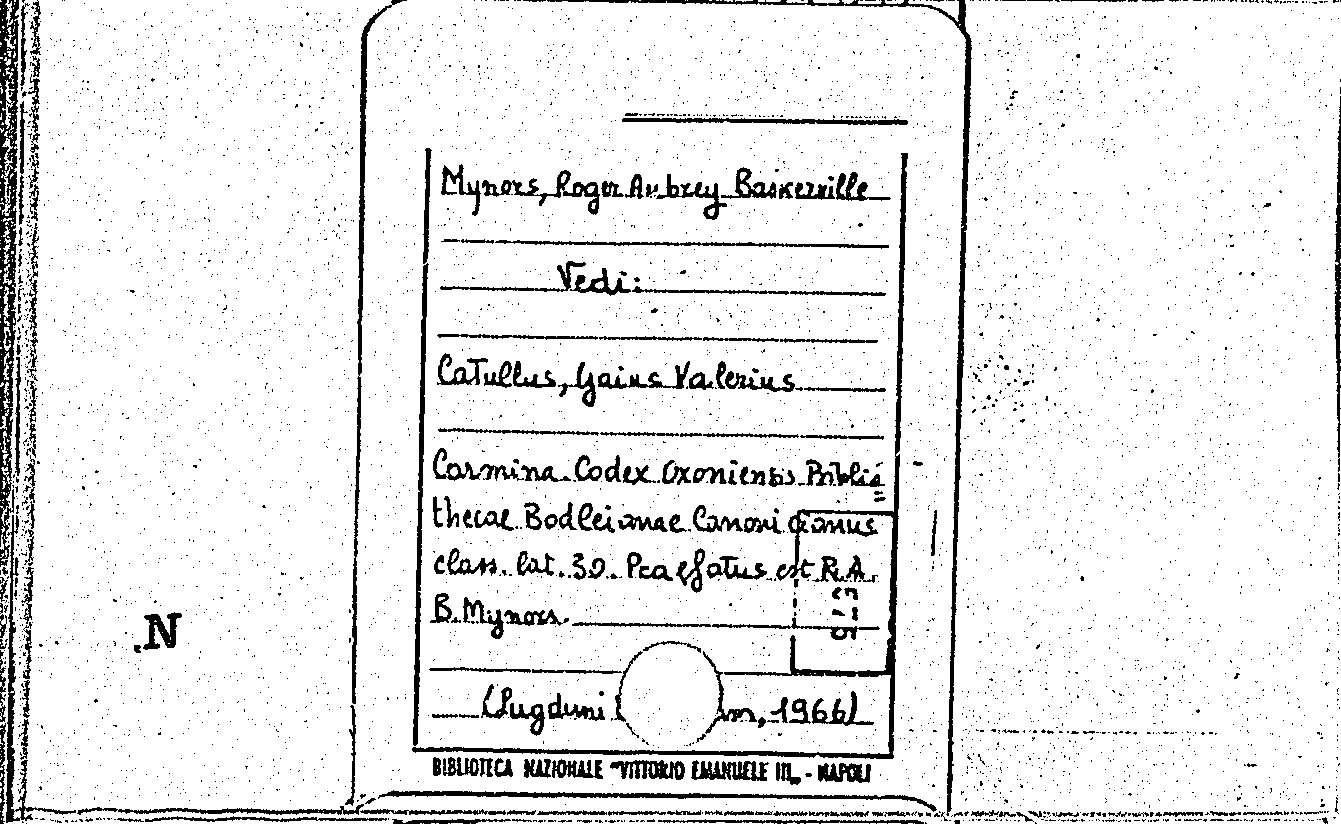 Mynors, Roger Aubrey Baskerville
Vedi:
Catullus, Gaius Valerius
Carmina. Codex Oxoniensis Biblio=
thecae Bodleianae Canonicianus
class. lat. 30. Praefatus est R.A.
B. Mynors.
(Lugduni m, 1966)
N
BIBLIOTECA NAZIONALE "VITTORIO EMANUELE III„ - NAPOLI